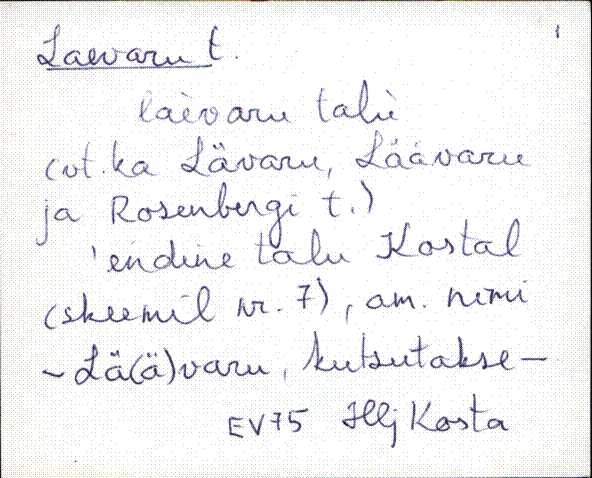 Laevaru t.
laèvaru talù
(vt. ka Lävaru, Läävaru
ja Rosenbergi t.)
'endine talu Kostal
(skeemil nr. 7), am. nimi
~ Lä(ä)varu, kutsutakse –
EV75 Hlj Kosta